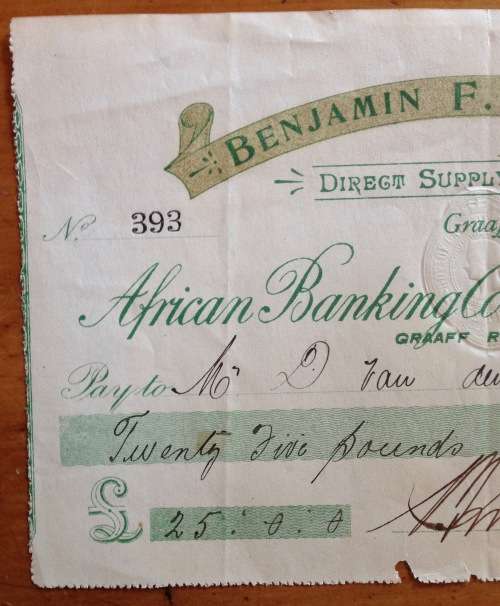 BENJAMIN F.
DIRECT SUPPLY
No. 393
Graaf
African Banking Co
GRAAFF R
Pay to Mr D van der
Twenty Five pounds
£ 25 : 0 : 0